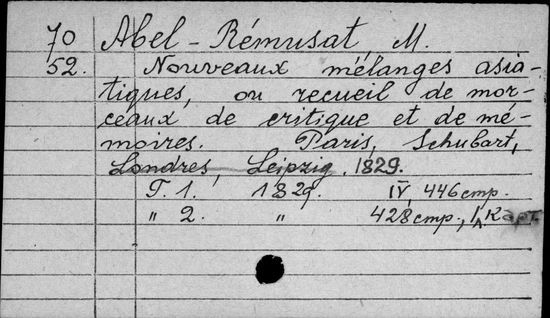 70 Abel-Rémusat, M.
52. Nouveaux mélanges asia-
tiques, ou recueil de mor-
ceaux de critique et de mé-
moires. Paris, Schubart,
Londres, Leipzig. 1829.
T. 1. 1829. IV, 446 стр.
" 2. " 428 стр., 1 Карт.